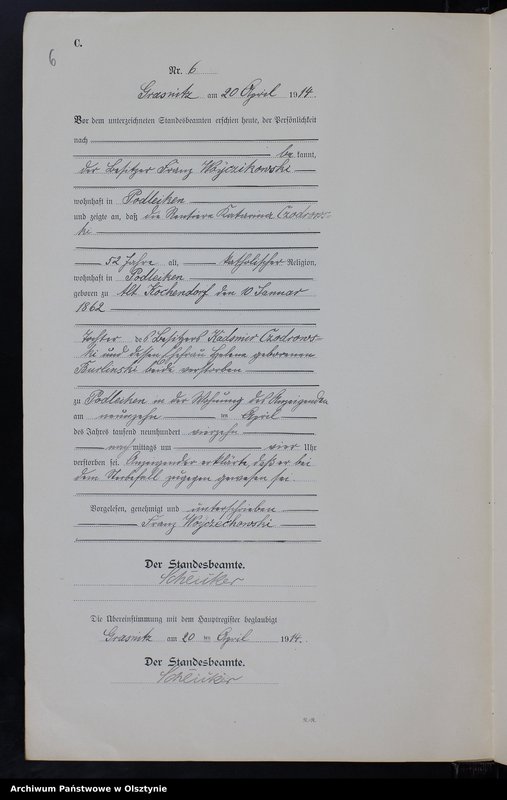 C.
6
Nr. 6
Grasnitz am 20 April 1914.
Vor dem unterzeichneten Standesbeamten erschien heute, der Persönlichkeit
nach
be kannt,
der Besitzer Franz Woyczikowski
wohnhaft in Podlejken
und zeigte an, daß die Rentiere Katarina Czodrows-
ki
52 Jahre alt, katholischer Religion,
wohnhaft in Podlejken
geboren zu Alt Kochendorf den 10 Januar
1862
Tochter des Besitzers Kasimir Czodrows-
ki und dessen Ehefrau Helene geborenen
Burlinski beide verstorben
zu Podlejken in der Wohnung des Anzeigenden
am neunzehn ten April
des Jahres tausend neunhundert vierzehn
nach mittags um vier Uhr
verstorben sei. Anzeigender erklärte, daß er bei
dem Sterbefall zugegen gewesen sei.
Vorgelesen, genehmigt und unterschrieben
Franz Wojciechowski
Der Standesbeamte.
Die Übereinstimmung mit dem Hauptregister beglaubigt
Grasnitz am 20 ten April 1914.
Der Standesbeamte.
Archiwum Państwowe w Olsztynie